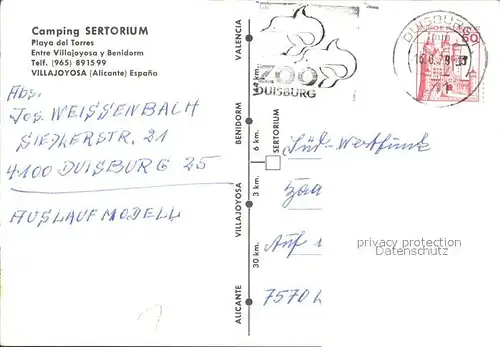 Camping SERTORIUM
Playa del Torres
Entre Villajoyosa y Benidorm
Telf. (965) 891599
VILLAJOYOSA (Alicante) España
Abs.
Jos. WEISSENBACH
SIEDLERSTR. 21
4100 DUISBURG 25
AUSLAUFMODELL
VALENCIA
144 km.
BENIDORM
6 km.
SERTORIUM
3 km.
VILLAJOYOSA
30 km.
ALICANTE
ZOO
DUISBURG
DUISBURG
60
Süd-Westfunk
Auf
7570
privacy protection
watermark for ansichtskarten-lexikon.de